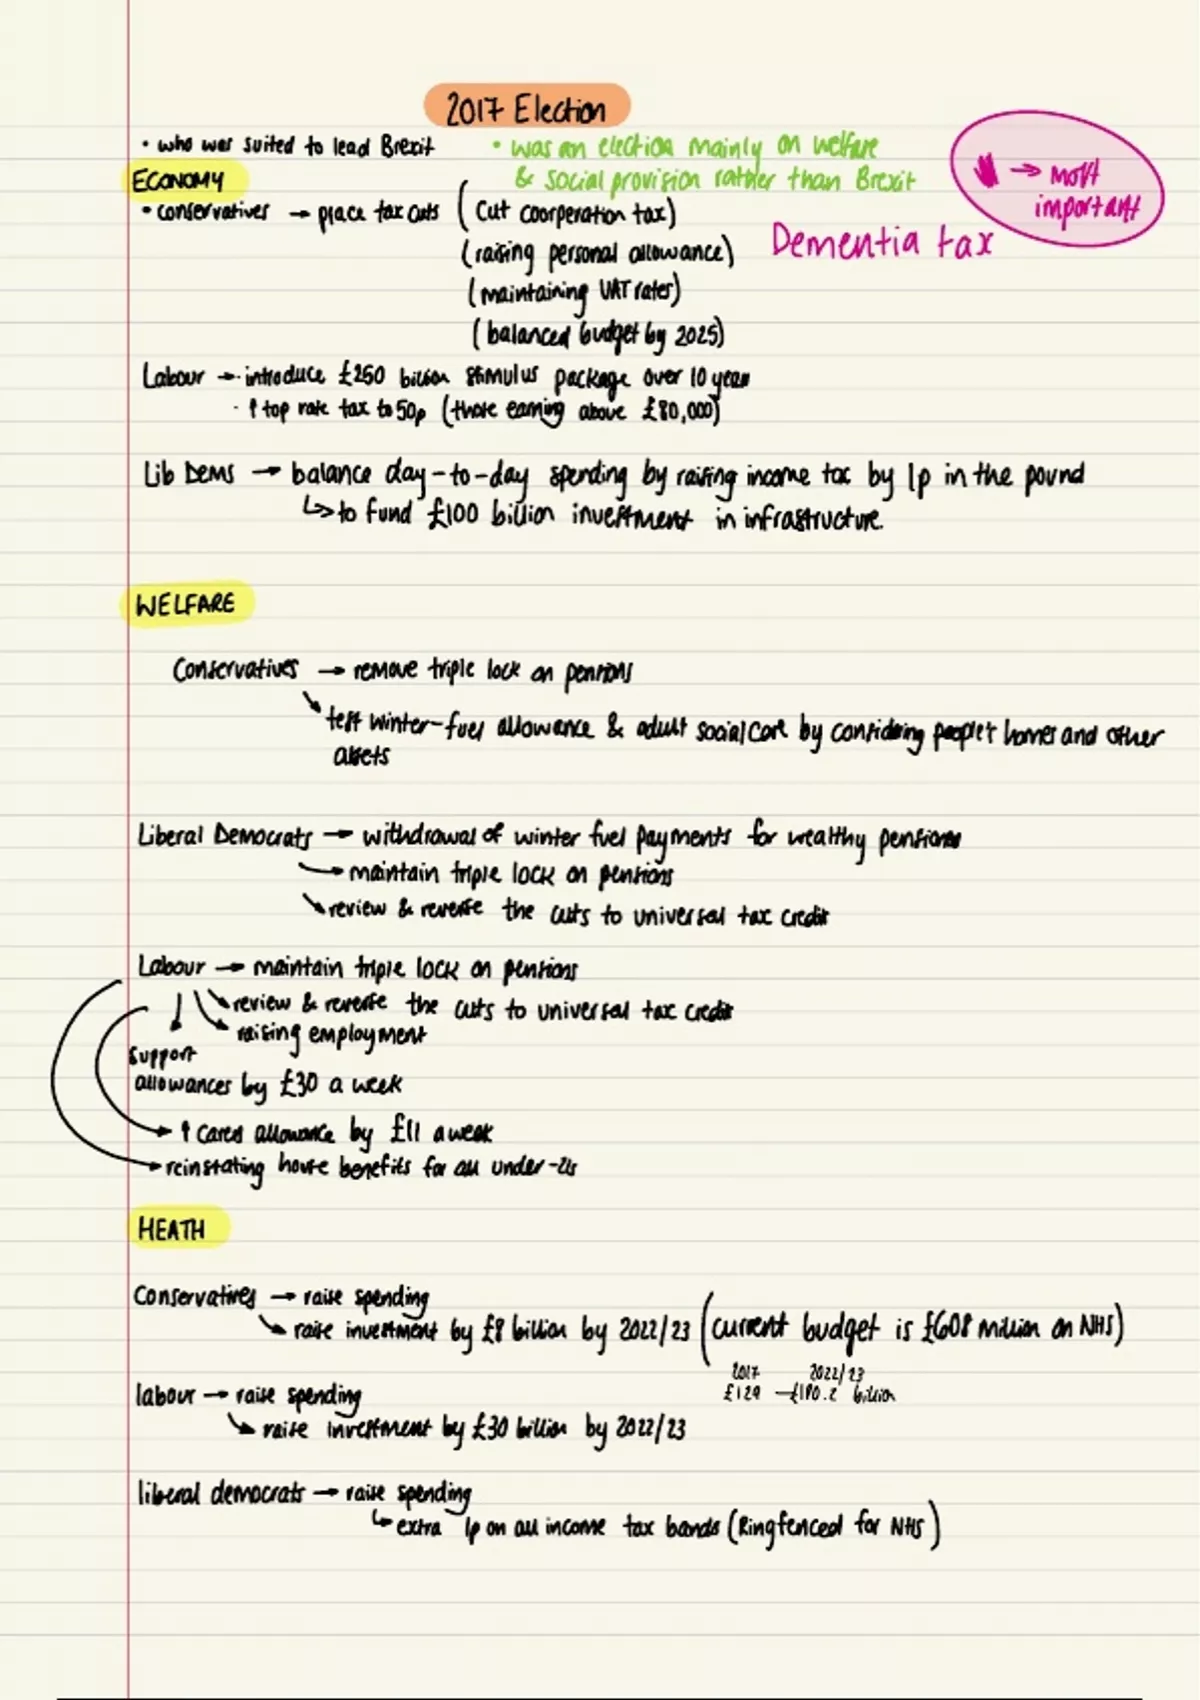 2017 Election
• who was suited to lead Brexit
• was an election mainly on welfare
& social provision rather than Brexit
→ most
important
ECONOMY
• conservatives → place tax cuts (cut coorperation tax)
(raising personal allowance)
Dementia tax
(maintaining VAT rates)
(balanced budget by 2025)
Labour → · introduce £250 billion stimulus package over 10 years
· ↑ top rate tax to 50p (those earning above £80,000)
Lib Dems → balance day-to-day spending by raising income tax by 1p in the pound
↳ to fund £100 billion investment in infrastructure.
WELFARE
Conservatives → remove triple lock on pensions
test winter-fuel allowance & adult social care by considering people's homes and other
assets
Liberal Democrats → withdrawal of winter fuel payments for wealthy pensions
→ maintain triple lock on pensions
review & reverse the cuts to universal tax credit
Labour → maintain triple lock on pensions
review & reverse the cuts to universal tax credit
raising employment
support
allowances by £30 a week
→ ↑ carers allowance by £11 a week
→ reinstating house benefits for all under-21s
HEATH
Conservatives → raise spending
raise investment by £8 billion by 2022/23 (current budget is £608 million on NHS)
2017 2022/23
£129 – £180.2 billion
labour → raise spending
raise investment by £30 billion by 2022/23
liberal democrats → raise spending
↳ extra 1p on all income tax bands (Ringfenced for NHS)